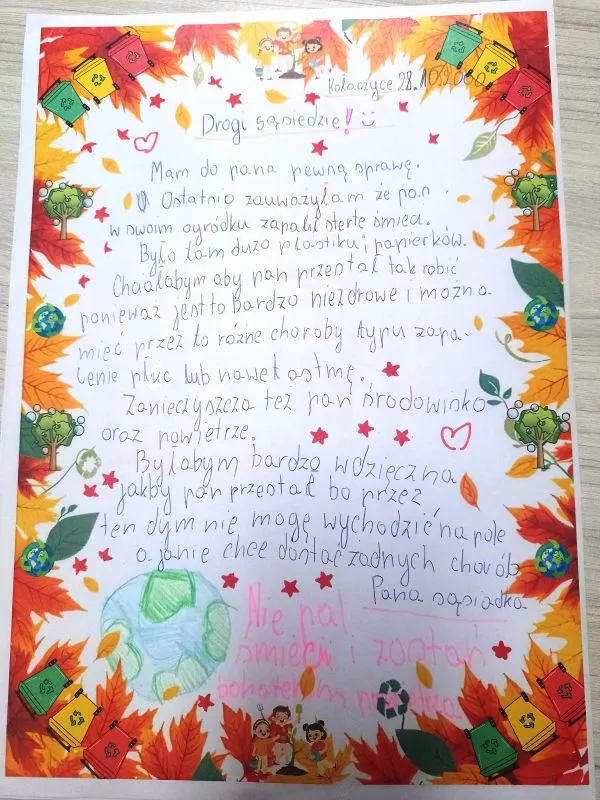 Kołaczyce 28.10.2000
Drogi sąsiedzie!
Mam do pana pewną sprawę.
Ostatnio zauważyłam że pan
w swoim ogródku zapalił stertę śmieci.
Było tam dużo plastiku i papierków.
Chciałabym aby pan przestał tak robić
ponieważ jest to bardzo niezdrowe i można
mieć przez to różne choroby typu zapa-
lenie płuc lub nawet astmę.
Zanieczyszcza też pan środowisko
oraz powietrze.
Byłabym bardzo wdzięczna
jakby pan przestał bo przez
ten dym nie mogę wychodzić na pole
a ja nie chce dostać żadnych chorób
Pana sąsiadka
Nie pal
śmieci i zostań
bohaterem powietrza